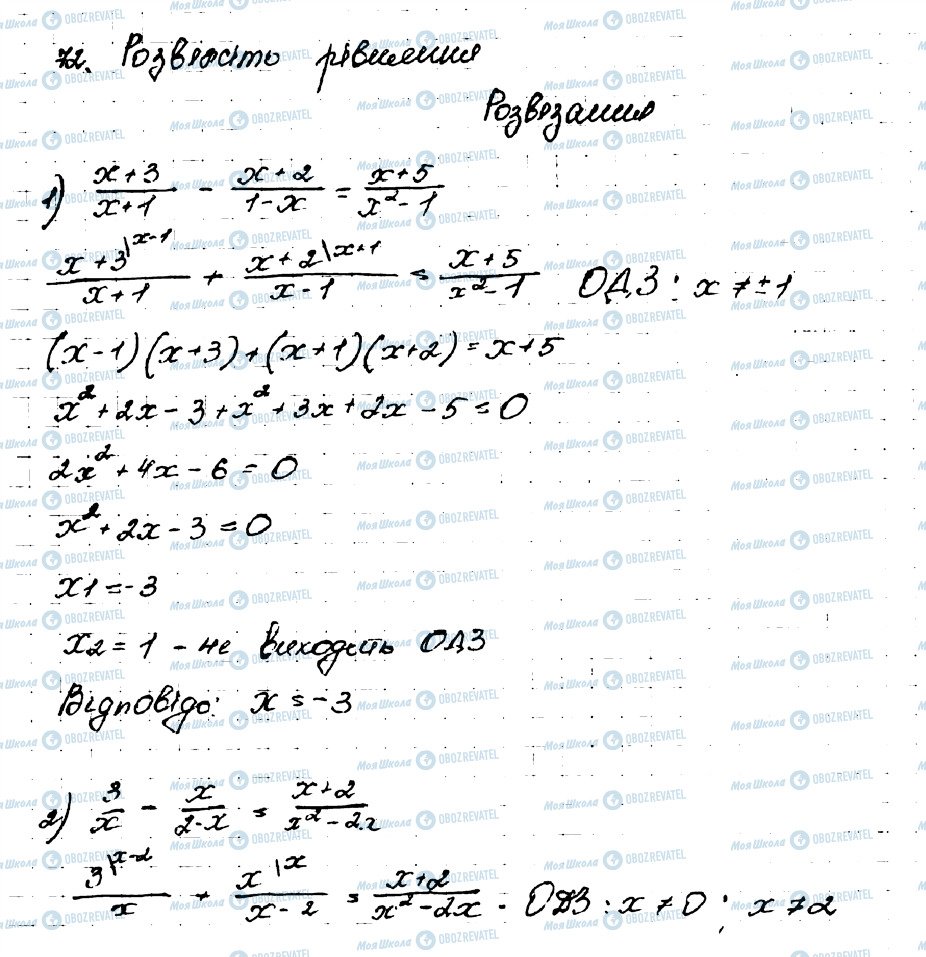 72. Розв'яжіть рівняння
Розв'язання
1) (x+3)/(x+1) - (x+2)/(1-x) = (x+5)/(x²-1)
(x+3\x-1)/(x+1) + (x+2\x+1)/(x-1) = (x+5)/(x²-1) ОДЗ: x ≠ ±1
(x-1)(x+3)+(x+1)(x+2)=x+5
x²+2x-3+x²+3x+2x-5=0
2x²+4x-6=0
x²+2x-3=0
x1=-3
x2=1 - не виходить ОДЗ
Відповідь: x=-3
2) 3/x - x/(2-x) = (x+2)/(x²-2x)
(3\x-2)/x + (x\x)/(x-2) = (x+2)/(x²-2x) - ОДЗ: x ≠ 0; x ≠ 2
Моя Школа OBOZREVATEL